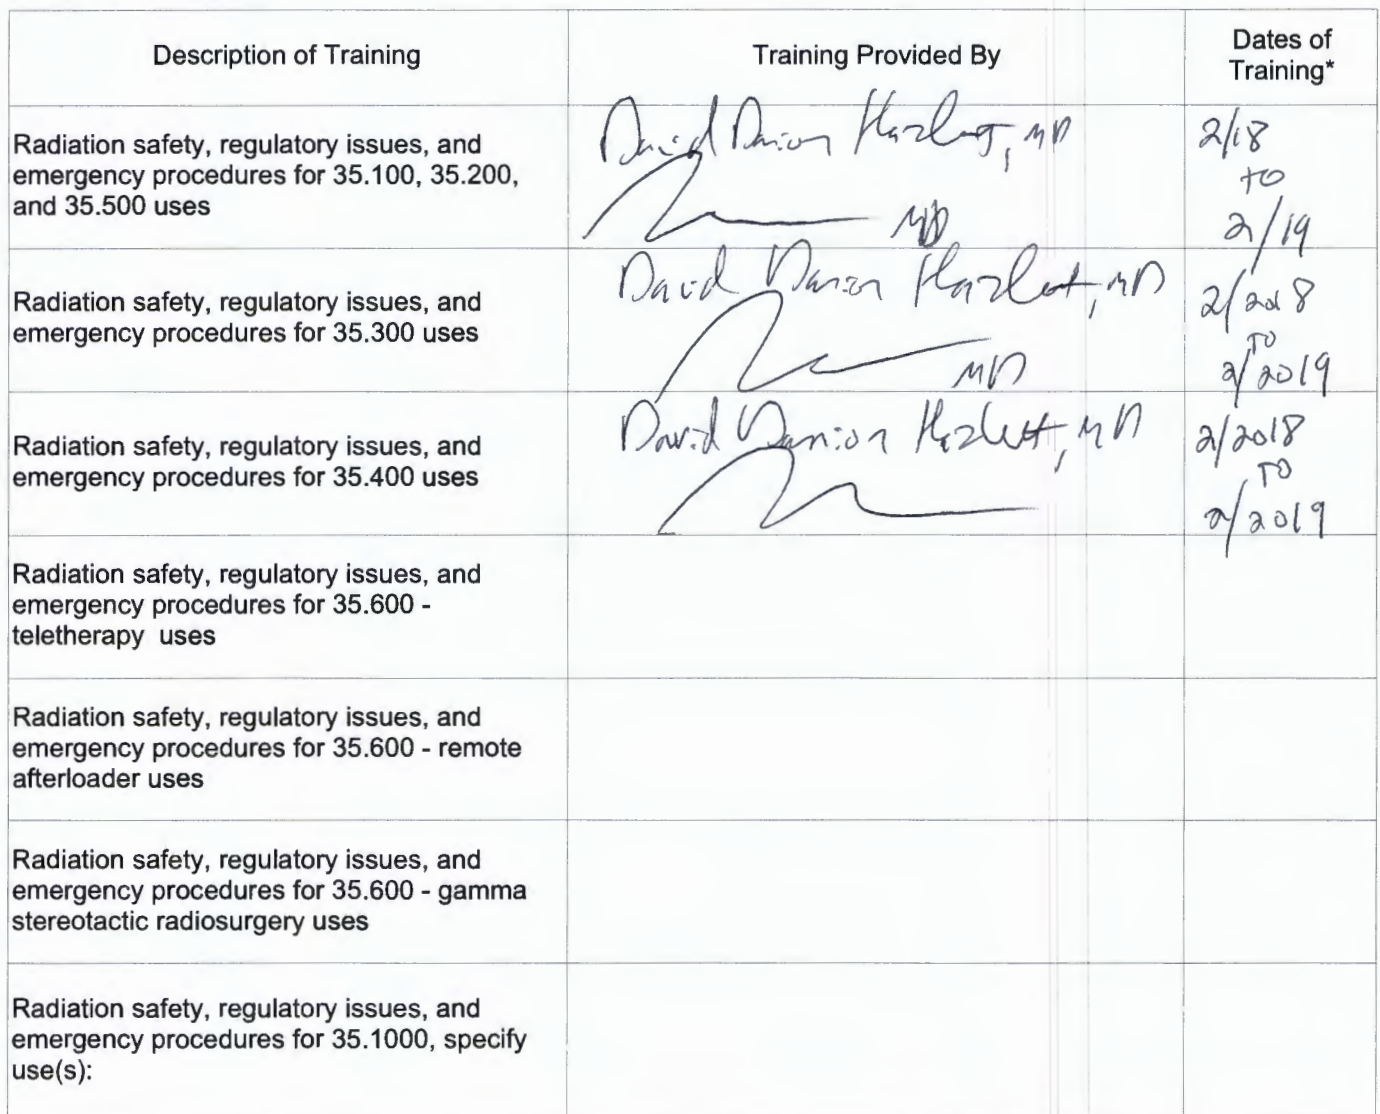 Description of Training
Training Provided By
Dates of
Training*
Radiation safety, regulatory issues, and
emergency procedures for 35.100, 35.200,
and 35.500 uses
David Damion Hazlett, MD
MD
2/18
TO
2/19
Radiation safety, regulatory issues, and
emergency procedures for 35.300 uses
David Damion Hazlett, MD
MD
2/2018
TO
2/2019
Radiation safety, regulatory issues, and
emergency procedures for 35.400 uses
David Damion Hazlett, MD
2/2018
TO
2/2019
Radiation safety, regulatory issues, and
emergency procedures for 35.600 -
teletherapy uses
Radiation safety, regulatory issues, and
emergency procedures for 35.600 - remote
afterloader uses
Radiation safety, regulatory issues, and
emergency procedures for 35.600 - gamma
stereotactic radiosurgery uses
Radiation safety, regulatory issues, and
emergency procedures for 35.1000, specify
use(s):